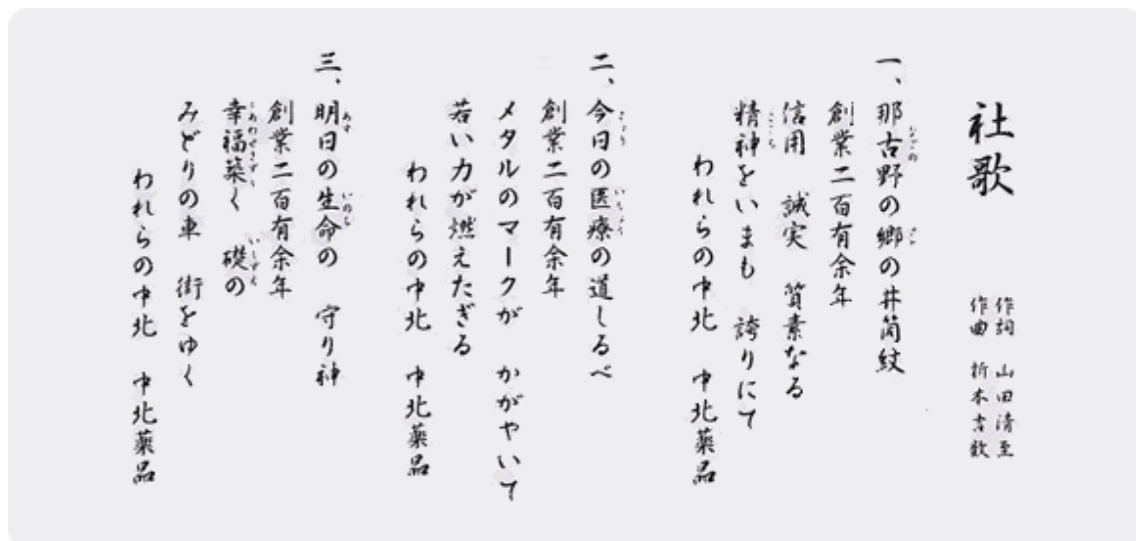 社歌
作詞 山田清至
作曲 折本吉数
一、那古野の郷の井筒紋
創業二百有余年
信用 誠実 質素なる
精神をいまも 誇りにて
われらの中北 中北薬品
二、今日の医療の道しるべ
創業二百有余年
メタルのマークが かがやいて
若い力が燃えたぎる
われらの中北 中北薬品
三、明日の生命の 守り神
創業二百有余年
幸福築く 礎の
みどりの車 街をゆく
われらの中北 中北薬品